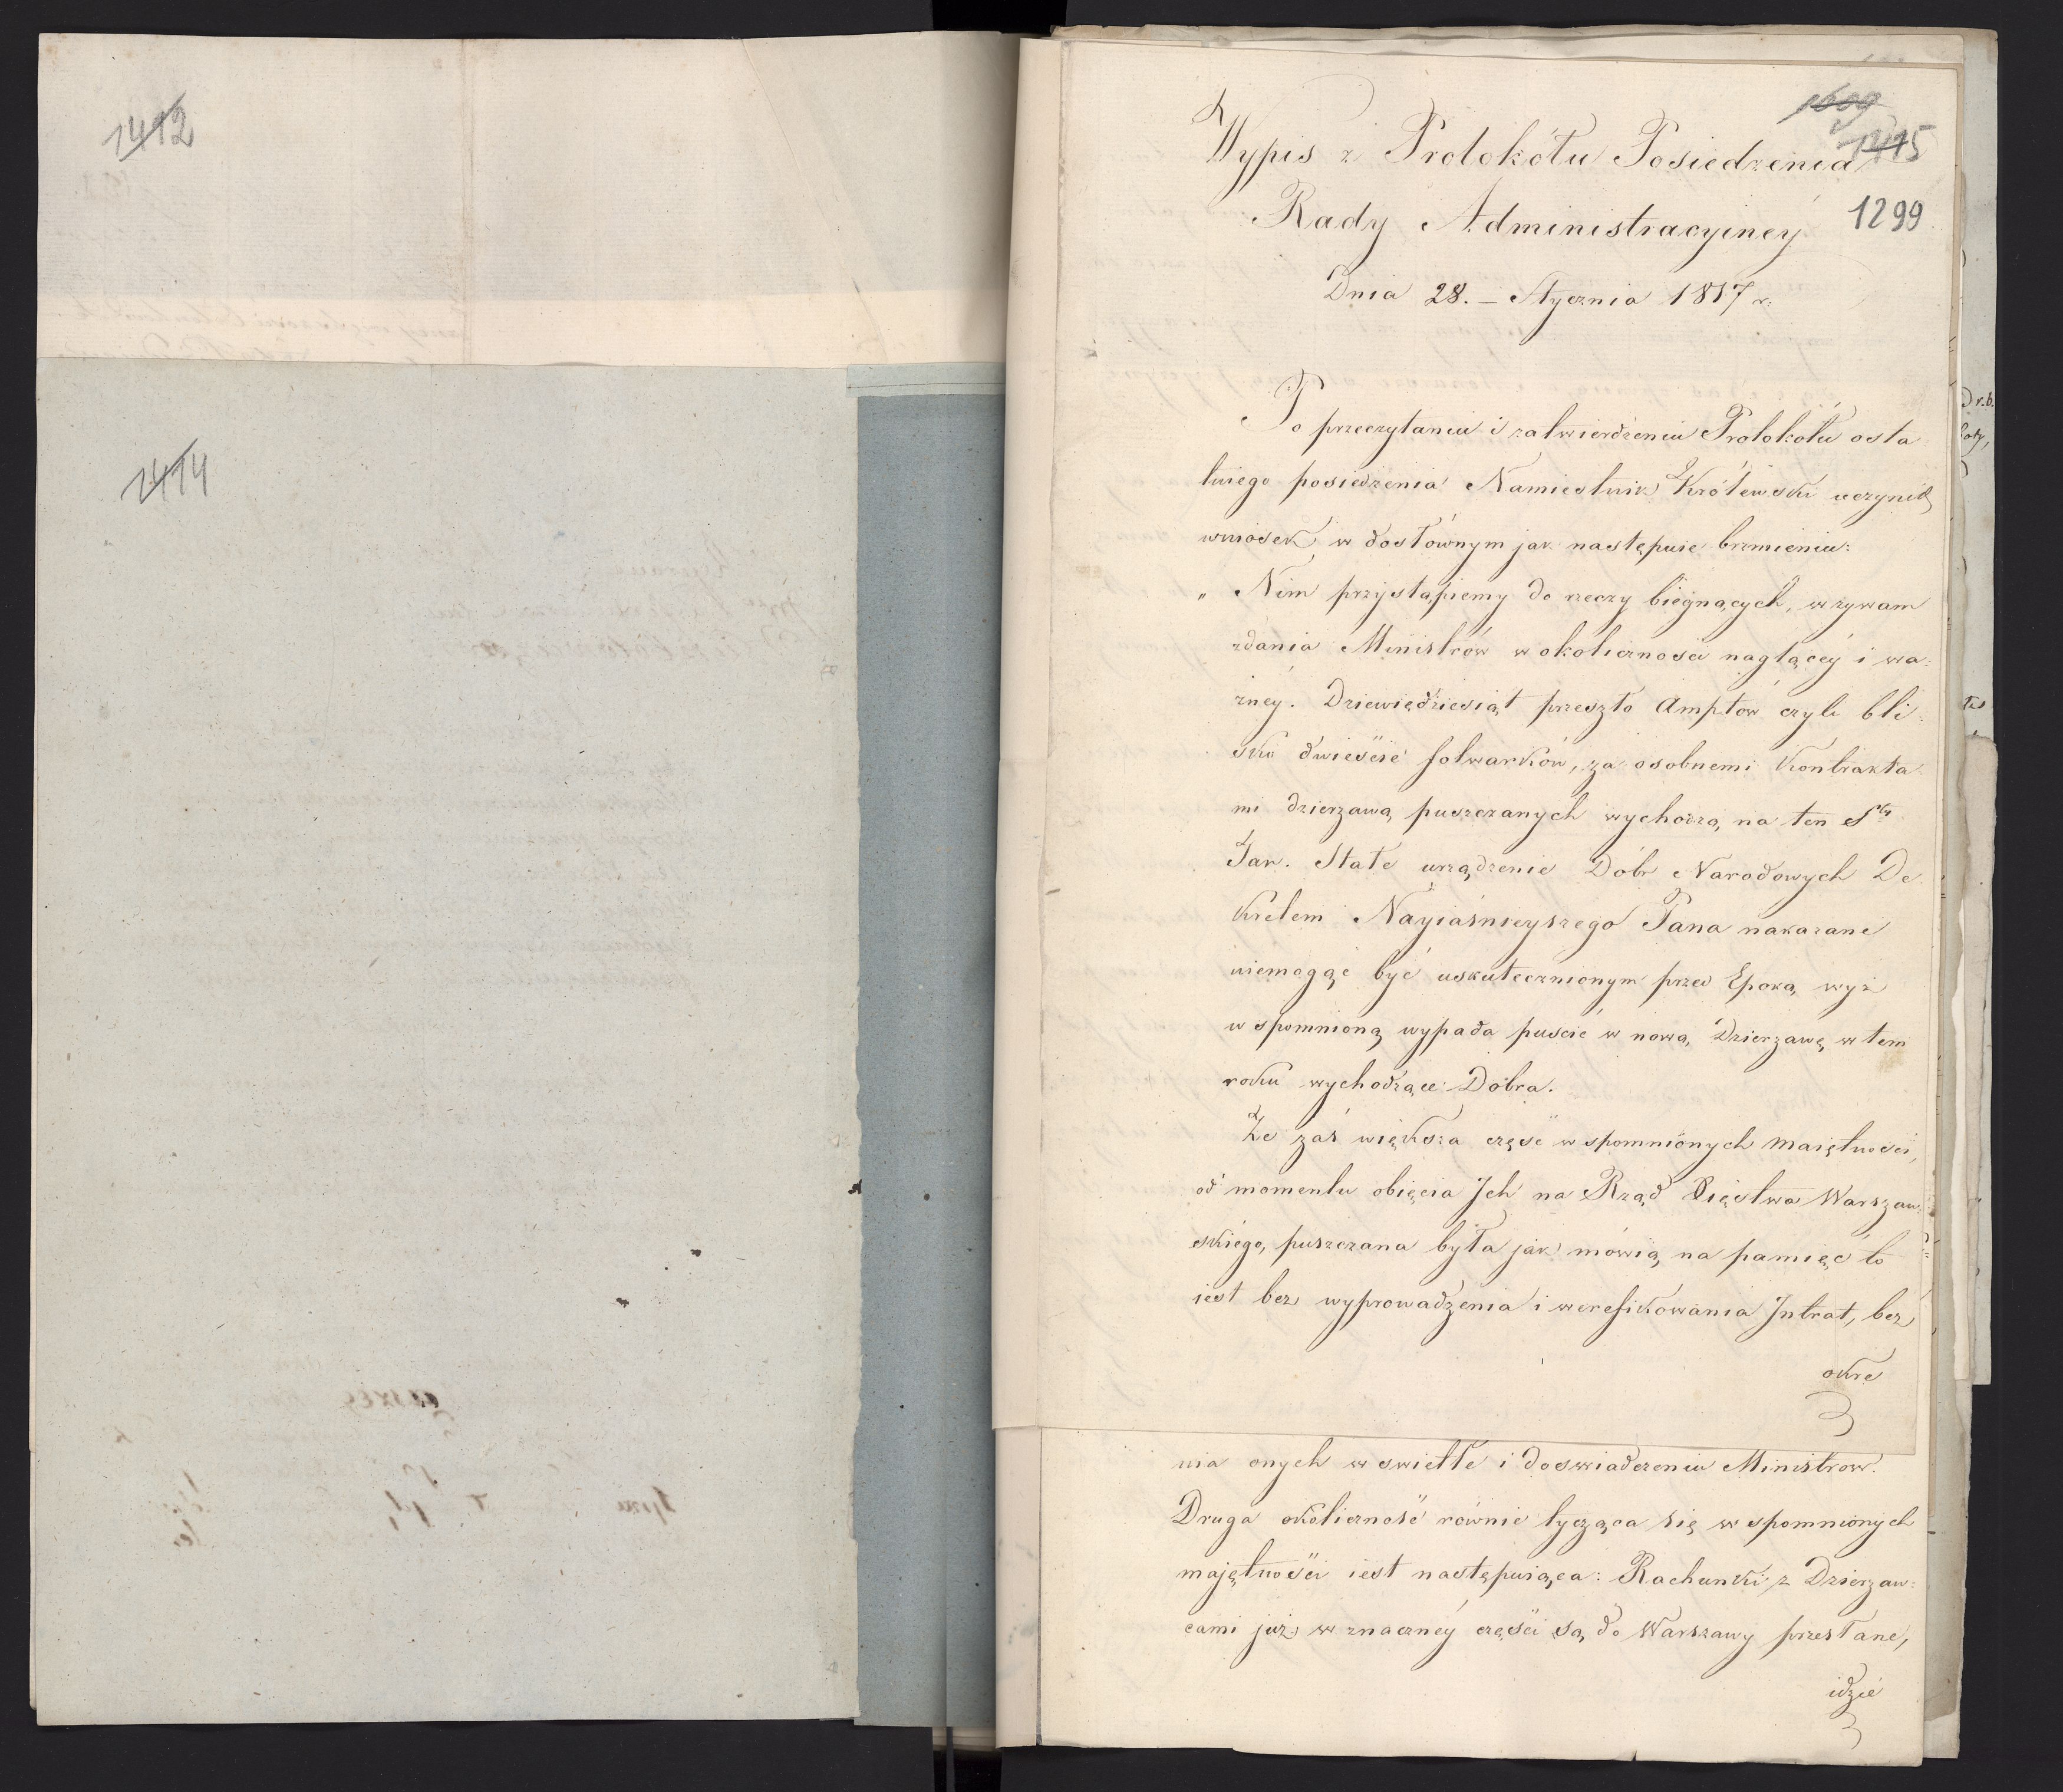 1412
1414
1609
1415
Wypis z Protokółu Posiedzenia
Rady Administracyiney
1299
Dnia 28. – Stycznia 1817 r.
Po przeczytaniu i zatwierdzeniu Protokołu osta
tniego posiedzenia Namiestnik Królewski uczynił
wniosek w dosłównym jak następuie brzmieniu:
„ Nim przystąpiemy do rzeczy biegnących, wzywam
zdania Ministrów w okoliczności nagłącéy i wa:
żnéy. Dziewiędziesiąt przeszło Amptów czyli bli:
sko dwieście folwarków, za osobnemi Kontrakta
mi dzierzawą puszczanych wychodzą na ten Sty
Jan. Stałe urządzenie Dóbr Narodowych De
kretem Nayiaśnieyszego Pana nakazane
niemogąc być uskutecznionym przed Epoką wyż
wspomnioną wypada puscić w nową Dzierzawę w tem
roku wychodzące Dobra.
Że zaś większa część wspomnionych maiętności,
od momentu obięcia Jch na Rząd Xięstwa Warszaw:
skiego, puszczana była jak mówią na pamięć to
iest bez wyprowadzenia i werefikowania Jntrat, bez
okre
nia onych w swietle i doswiadczeniu Ministrow.
Druga okoliczność równie tycząca się wspomnionych
majętności iest następuiąca: Rachunki z Dzierzaw:
cami już w znacznéy części są do Warszawy przesłane,
idzie